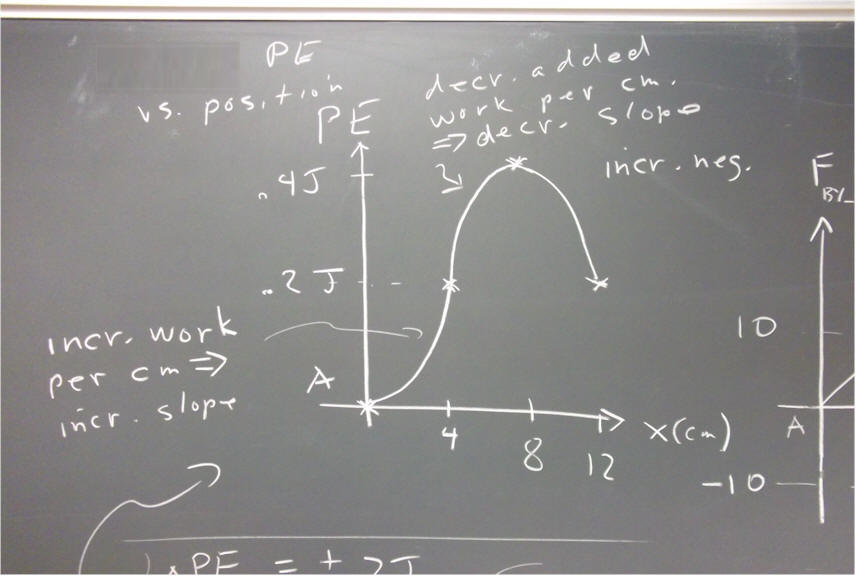 PE
vs. position
decr. added
work per cm.
⇒ decr. slope
PE
.4J
incr. neg.
F
BY_
.2 J
10
incr. work
per cm ⇒
incr. slope
A
x(cm)
4
8
12
A
-10
PE = +.2J